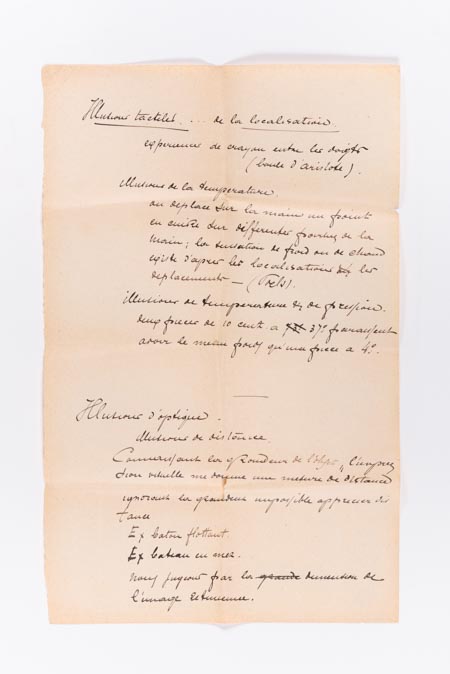 Illusions tactiles. ... de la localisation.
expérience de crayon entre les doigts
(boule d'aristote).
Illusions de la température.
on déplace sur la main un point
en cuivre sur différentes parties de la
main; la sensation de froid ou de chaud
existe d'après les localisations les
déplacements —
illusions de température & de pression.
deux pièces de 10 cent. a 37° paraissent
avoir le meme poids qu'une pièce a 4°.
Illusions d'optique.
Illusions de distance.
Connaissant la grandeur de l'objet, l'impres
sion visuelle me donne une mesure de distance
ignorant la grandeur impossible apprécier dis
tance
Ex baton flottant.
Ex bateau en mer.
nous jugeons par la grande dimension de
l'image retinienne.